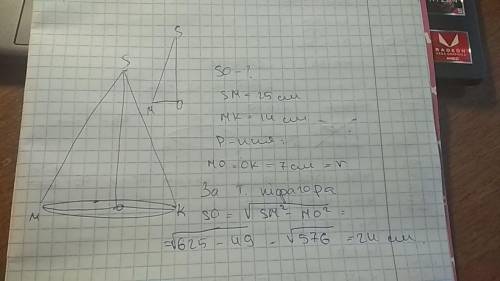 S
S
M
O
M
O
K
SO - ?
SM = 25 см
MK = 14 см
Р-ння:
MO = OK = 7 см = r
За т. Піфагора
SO = √SM² - MO² =
= √625 - 49 - √576 = 24 см.
RADEON
AMD